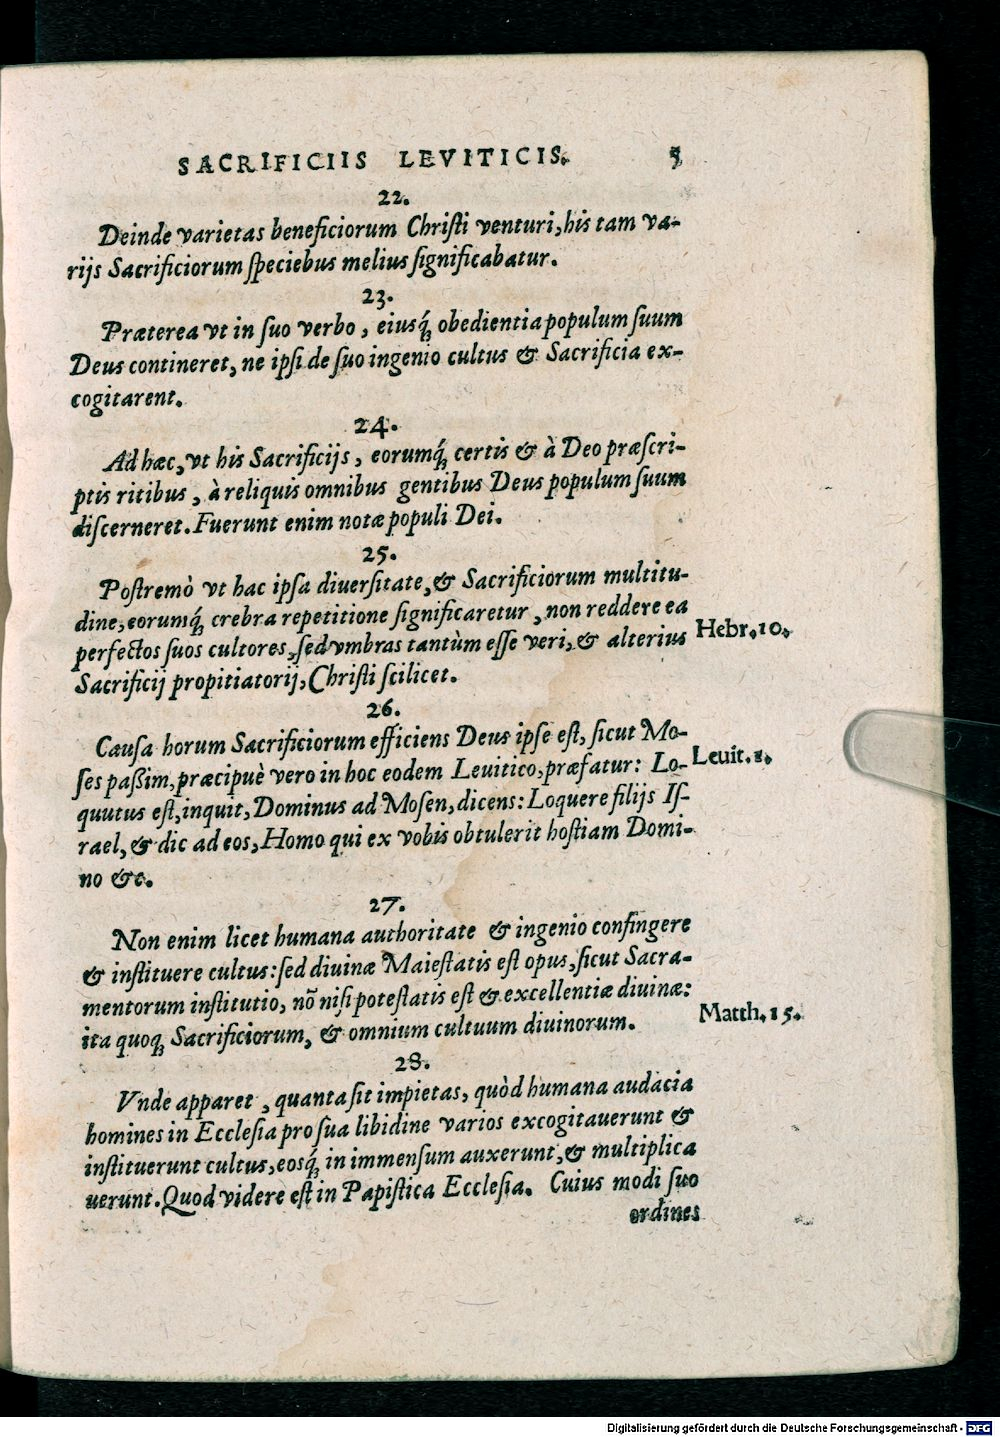 SACRIFICIIS LEVITICIS. 5
22.
Deinde varietas beneficiorum Chriſti venturi, his tam va-
rijs Sacrificiorum ſpeciebus melius ſignificabatur.
23.
Præterea vt in ſuo verbo, eiusq́; obedientia populum ſuum
Deus contineret, ne ipſi de ſuo ingenio cultus & Sacrificia ex-
cogitarent.
24.
Ad hæc, vt his Sacrificijs, eorumq́; certis & à Deo præſcri-
ptis ritibus, à reliquis omnibus gentibus Deus populum ſuum
diſcerneret. Fuerunt enim notæ populi Dei.
25.
Poſtremò vt hac ipſa diuerſitate, & Sacrificiorum multitu-
dine, eorumq́; crebra repetitione ſignificaretur, non reddere ea
perfectos ſuos cultores, ſed vmbras tantùm eſſe veri, & alterius
Hebr. 10.
Sacrificij propitiatorij, Chriſti ſcilicet.
26.
Cauſa horum Sacrificiorum efficiens Deus ipſe eſt, ſicut Mo-
ſes paßim, præcipuè vero in hoc eodem Leuitico, præfatur: Lo-
Leuit. 1.
quutus eſt, inquit, Dominus ad Moſen, dicens: Loquere filijs Iſ-
rael, & dic ad eos, Homo qui ex vobis obtulerit hoſtiam Domi-
no &c.
27.
Non enim licet humana authoritate & ingenio confingere
& inſtituere cultus: ſed diuinæ Maieſtatis eſt opus, ſicut Sacra-
mentorum inſtitutio, nõ niſi poteſtatis eſt & excellentiæ diuinæ:
Matth. 15.
ita quoq; Sacrificiorum, & omnium cultuum diuinorum.
28.
Vnde apparet, quanta ſit impietas, quòd humana audacia
homines in Eccleſia pro ſua libidine varios excogitauerunt &
inſtituerunt cultus, eosq́; in immenſum auxerunt, & multiplica
uerunt. Quod videre eſt in Papiſtica Eccleſia. Cuius modi ſuo
ordines
Digitalisierung gefördert durch die Deutsche Forschungsgemeinschaft - DFG